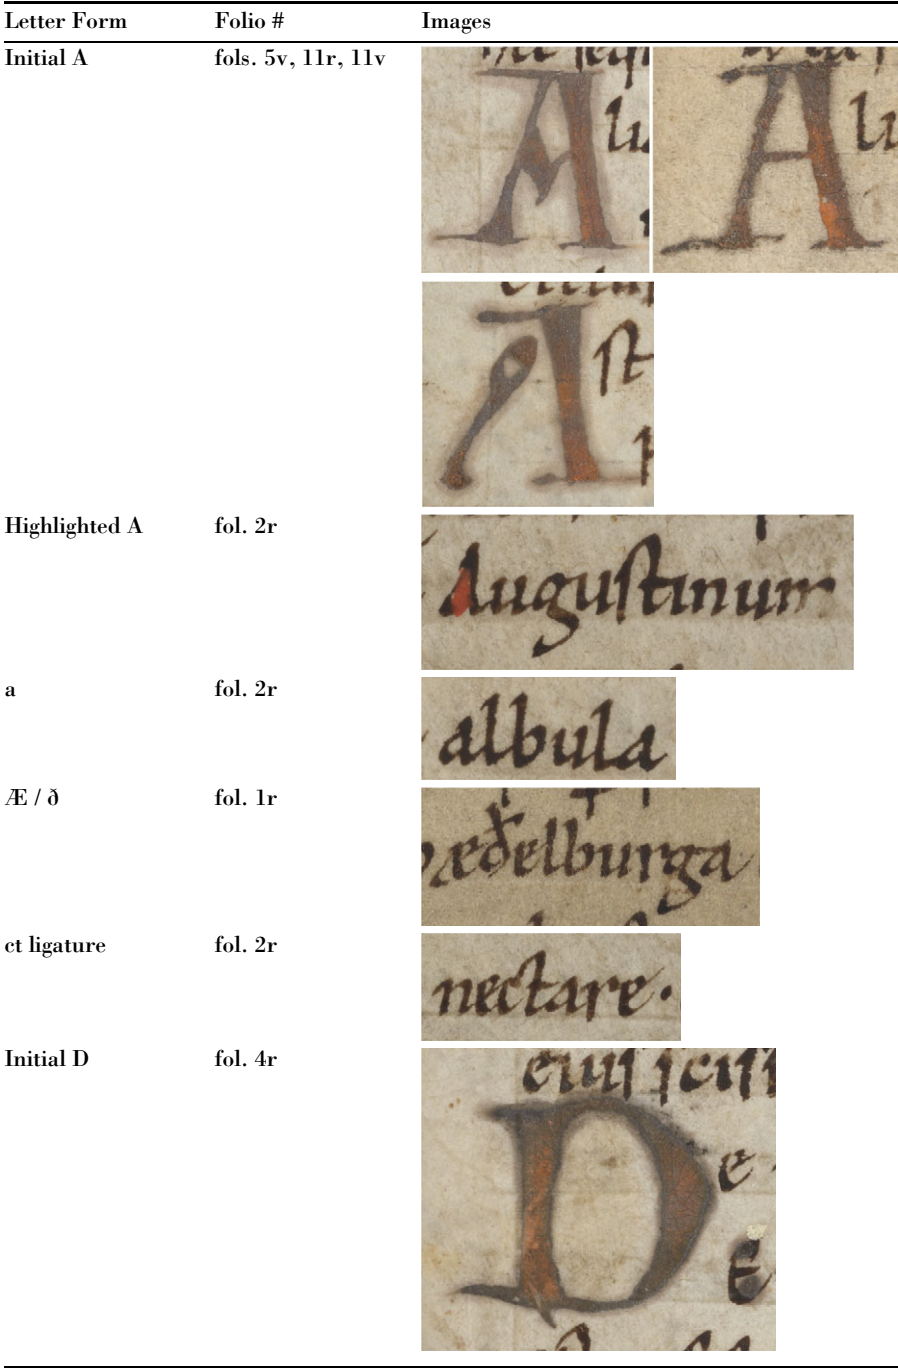 Letter Form Folio # Images
Initial A fols. 5v, 11r, 11v
A lu
A lu
A st
Highlighted A fol. 2r
Augustinum
a fol. 2r
albula
Æ / ð fol. 1r
æðelburga
ct ligature fol. 2r
nectare.
Initial D fol. 4r
D e.